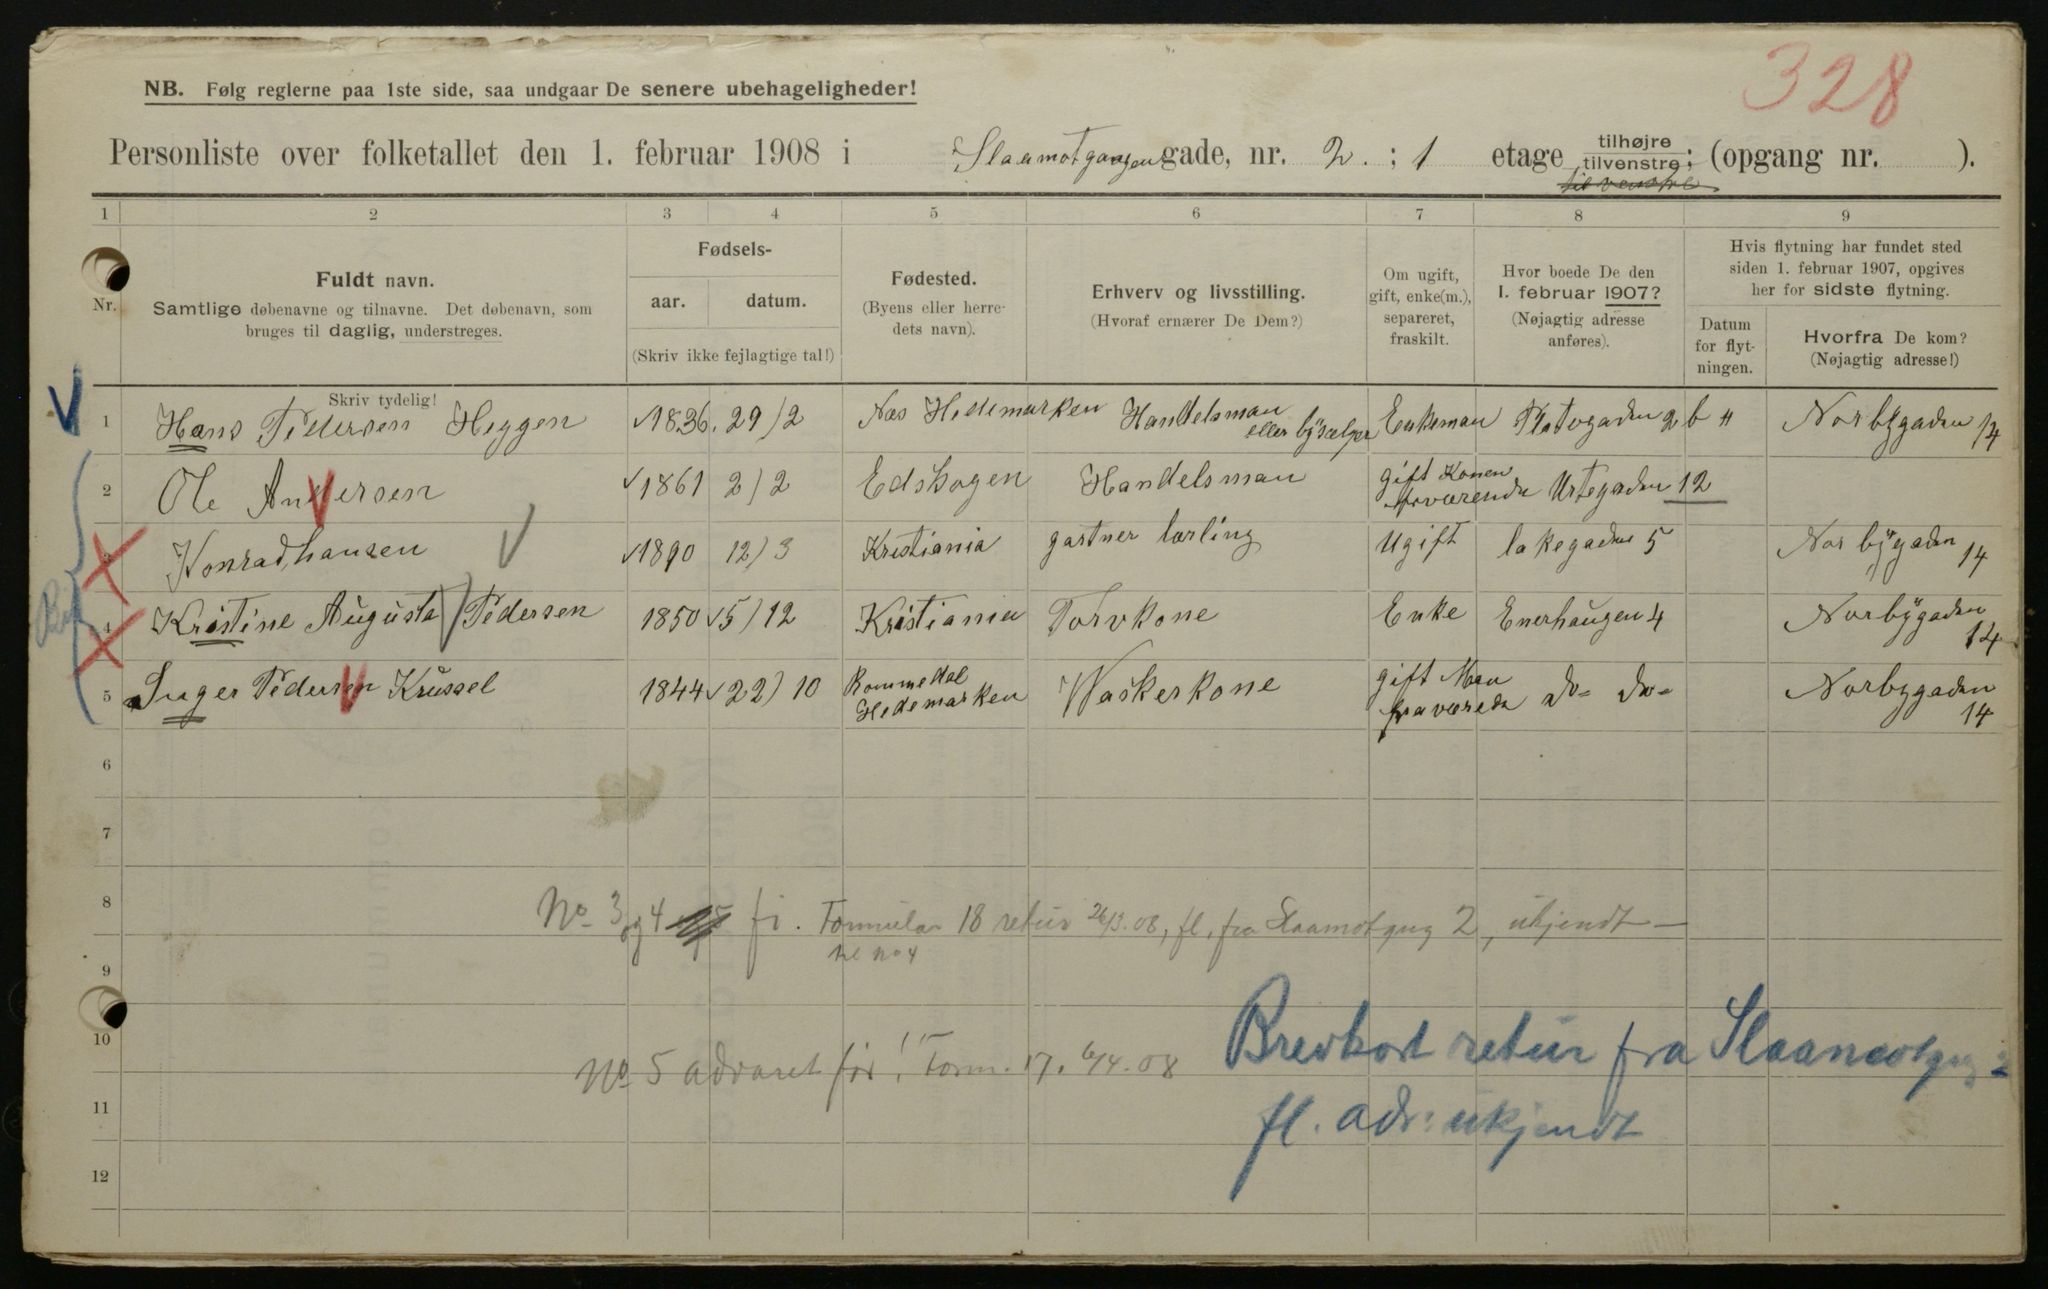 328
NB. Følg reglerne paa 1ste side, saa undgaar De senere ubehageligheder!
Personliste over folketallet den 1. februar 1908 i Slaamotgangen gade, nr. 2. ; 1 etage tilhøjre tilvenstre ; (opgang nr. ).
til venstre
1 2 3 4 5 6 7 8 9
Nr.
Fuldt navn.
Samtlige døbenavne og tilnavne. Det døbenavn, som
bruges til daglig, understreges.
Skriv tydelig!
Fødsels-
aar. datum.
(Skriv ikke fejlagtige tal!)
Fødested.
(Byens eller herre-
dets navn).
Erhverv og livsstilling.
(Hvoraf ernærer De Dem?)
Om ugift,
gift, enke(m.),
separeret,
fraskilt.
Hvor boede De den
1. februar 1907?
(Nøjagtig adresse
anføres).
Hvis flytning har fundet sted
siden 1. februar 1907, opgives
her for sidste flytning.
Datum
for flyt-
ningen.
Hvorfra De kom?
(Nøjagtig adresse!)
1 Hans Pedersen Heggen 1836. 29/2 Nes Hedemarken Handelsman eller bysælger Enkeman Platogaden 2 b " Norbygaden 14
2 Ole Andersen 1861 2/2 Edskogen Handelsman gift Konen fraværende Urtegaden 12
3 Konrad, hansen 1890 12/3 Kristiania gartner lærling Ugift lakegaden 5 Norbygaden 14
4 Kristine Augusta Pedersen 1850 5/12 Kristiania Torvkone Enke Enerhaugen 4 Norbygaden 14
5 Inger Pedersen Krussel 1844 22/10 Rommedal Hedemarken Waskerkone gift Man fraværede do- do- Norbygaden 14
6
7
8
No 3 og 4 fj. Formular 18 retur 26/3.08, fl. fra Slaamotgng 2, ukjendt
til no 4
9
10
No 5 advaret før! Form. 17. 6/4.08
Brevkort retur fra Slaamotgng 2
fl. adr: ukjendt
11
12